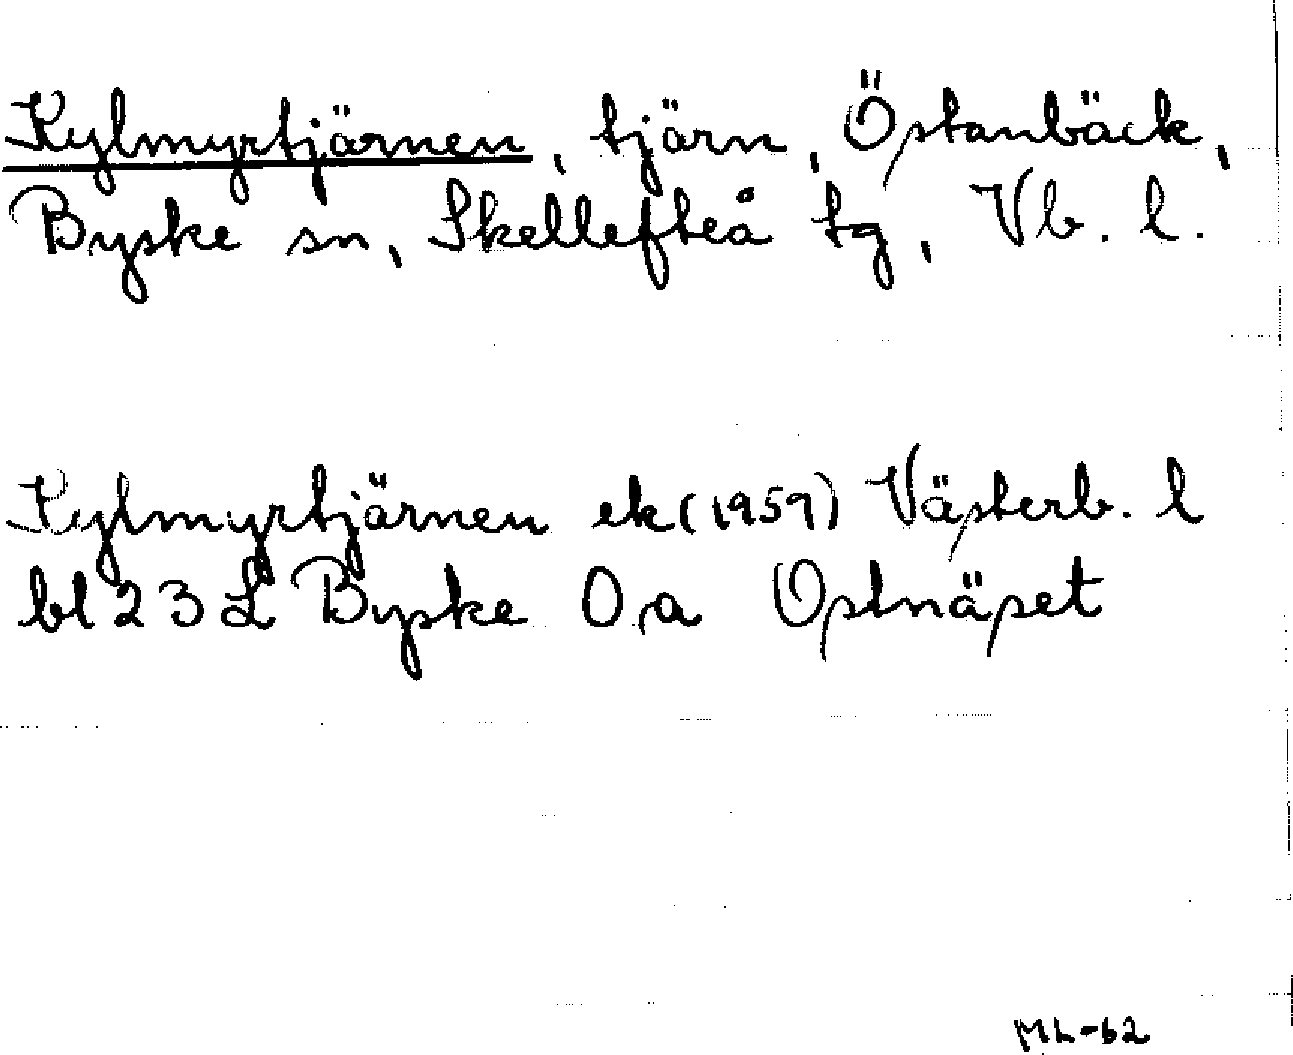 Kylmyrtjärnen, tjärn, Östanbäck,
Byske sn, Skellefteå tg, Vb. l.
Kylmyrtjärnen ek (1959) Västerb. l
bl 23 L Byske O, a Ostnäset
ML-62